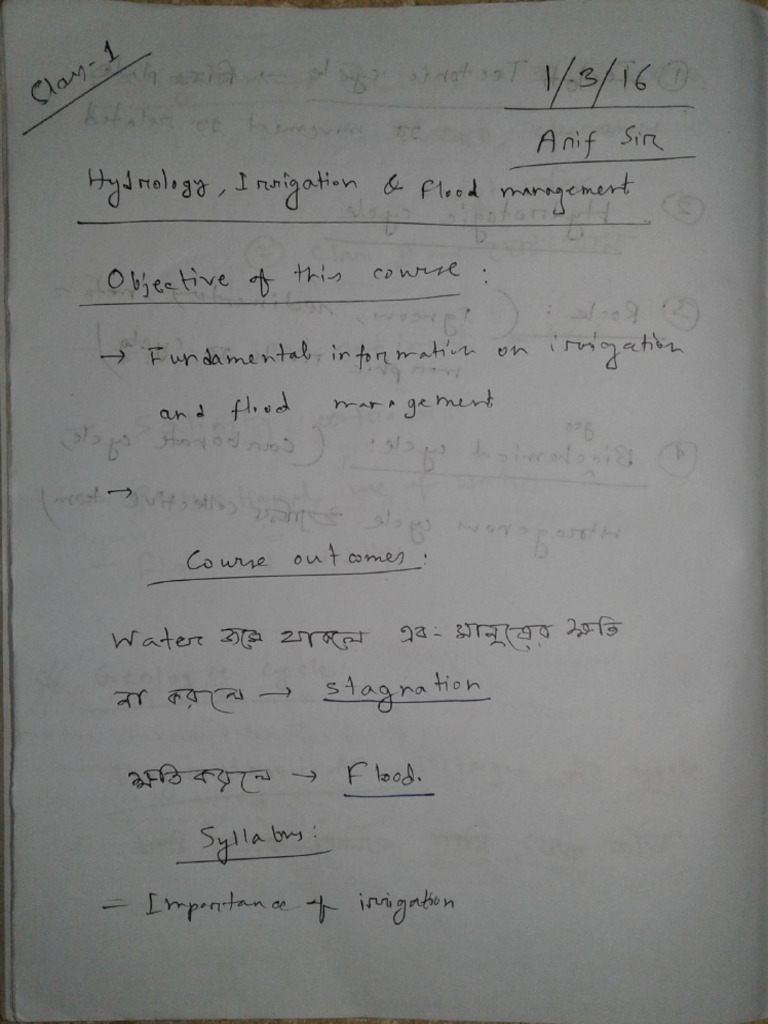 Class-1
1/3/16
Arif Sir
Hydrology, Irrigation & Flood management
Objective of this course :
→ Fundamental information on irrigation
and flood management
→
Course outcomes :
Water জমে থাকলে এবং মানুষের ক্ষতি
না করলে → stagnation
ক্ষতি করলে → Flood.
Syllabus :
= Importance of irrigation